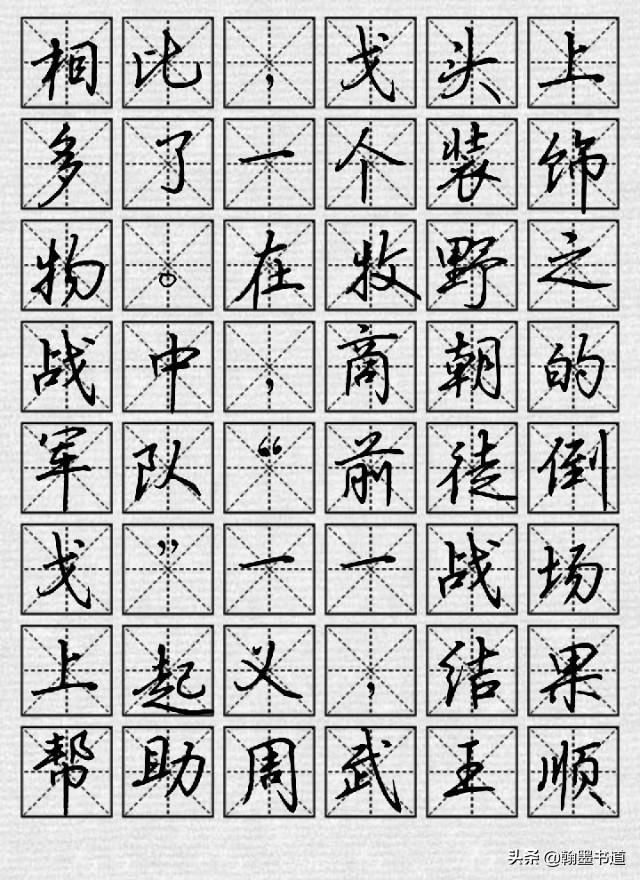 相比，戈头上
多了一个装饰
物。在牧野之
战中，商朝的
军队“前徒倒
戈”一一战场
上起义，结果
帮助周武王顺
头条 @翰墨书道